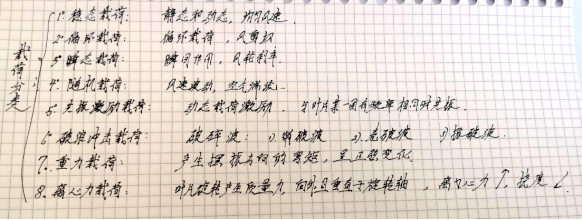 载荷分类
1. 稳态载荷: 静态和动态, 均匀风速.
2. 循环载荷: 循环载荷, 风剪切
3. 瞬态载荷: 瞬间作用, 风轮刹车.
4. 随机载荷: 风速波动,
5. 共振激励载荷: 动态载荷激励. 与叶片某一固有频率相同时共振.
6. 破浪冲击载荷: 破碎波: 1) 崩破波 2) 卷破波 3) 振破波.
7. 重力载荷: 产生摆振方向的弯矩, 呈正弦变化.
8. 离心力载荷: 叶片旋转产生质量力, 向外且垂直于旋转轴, 离心力↑, 挠度↙.